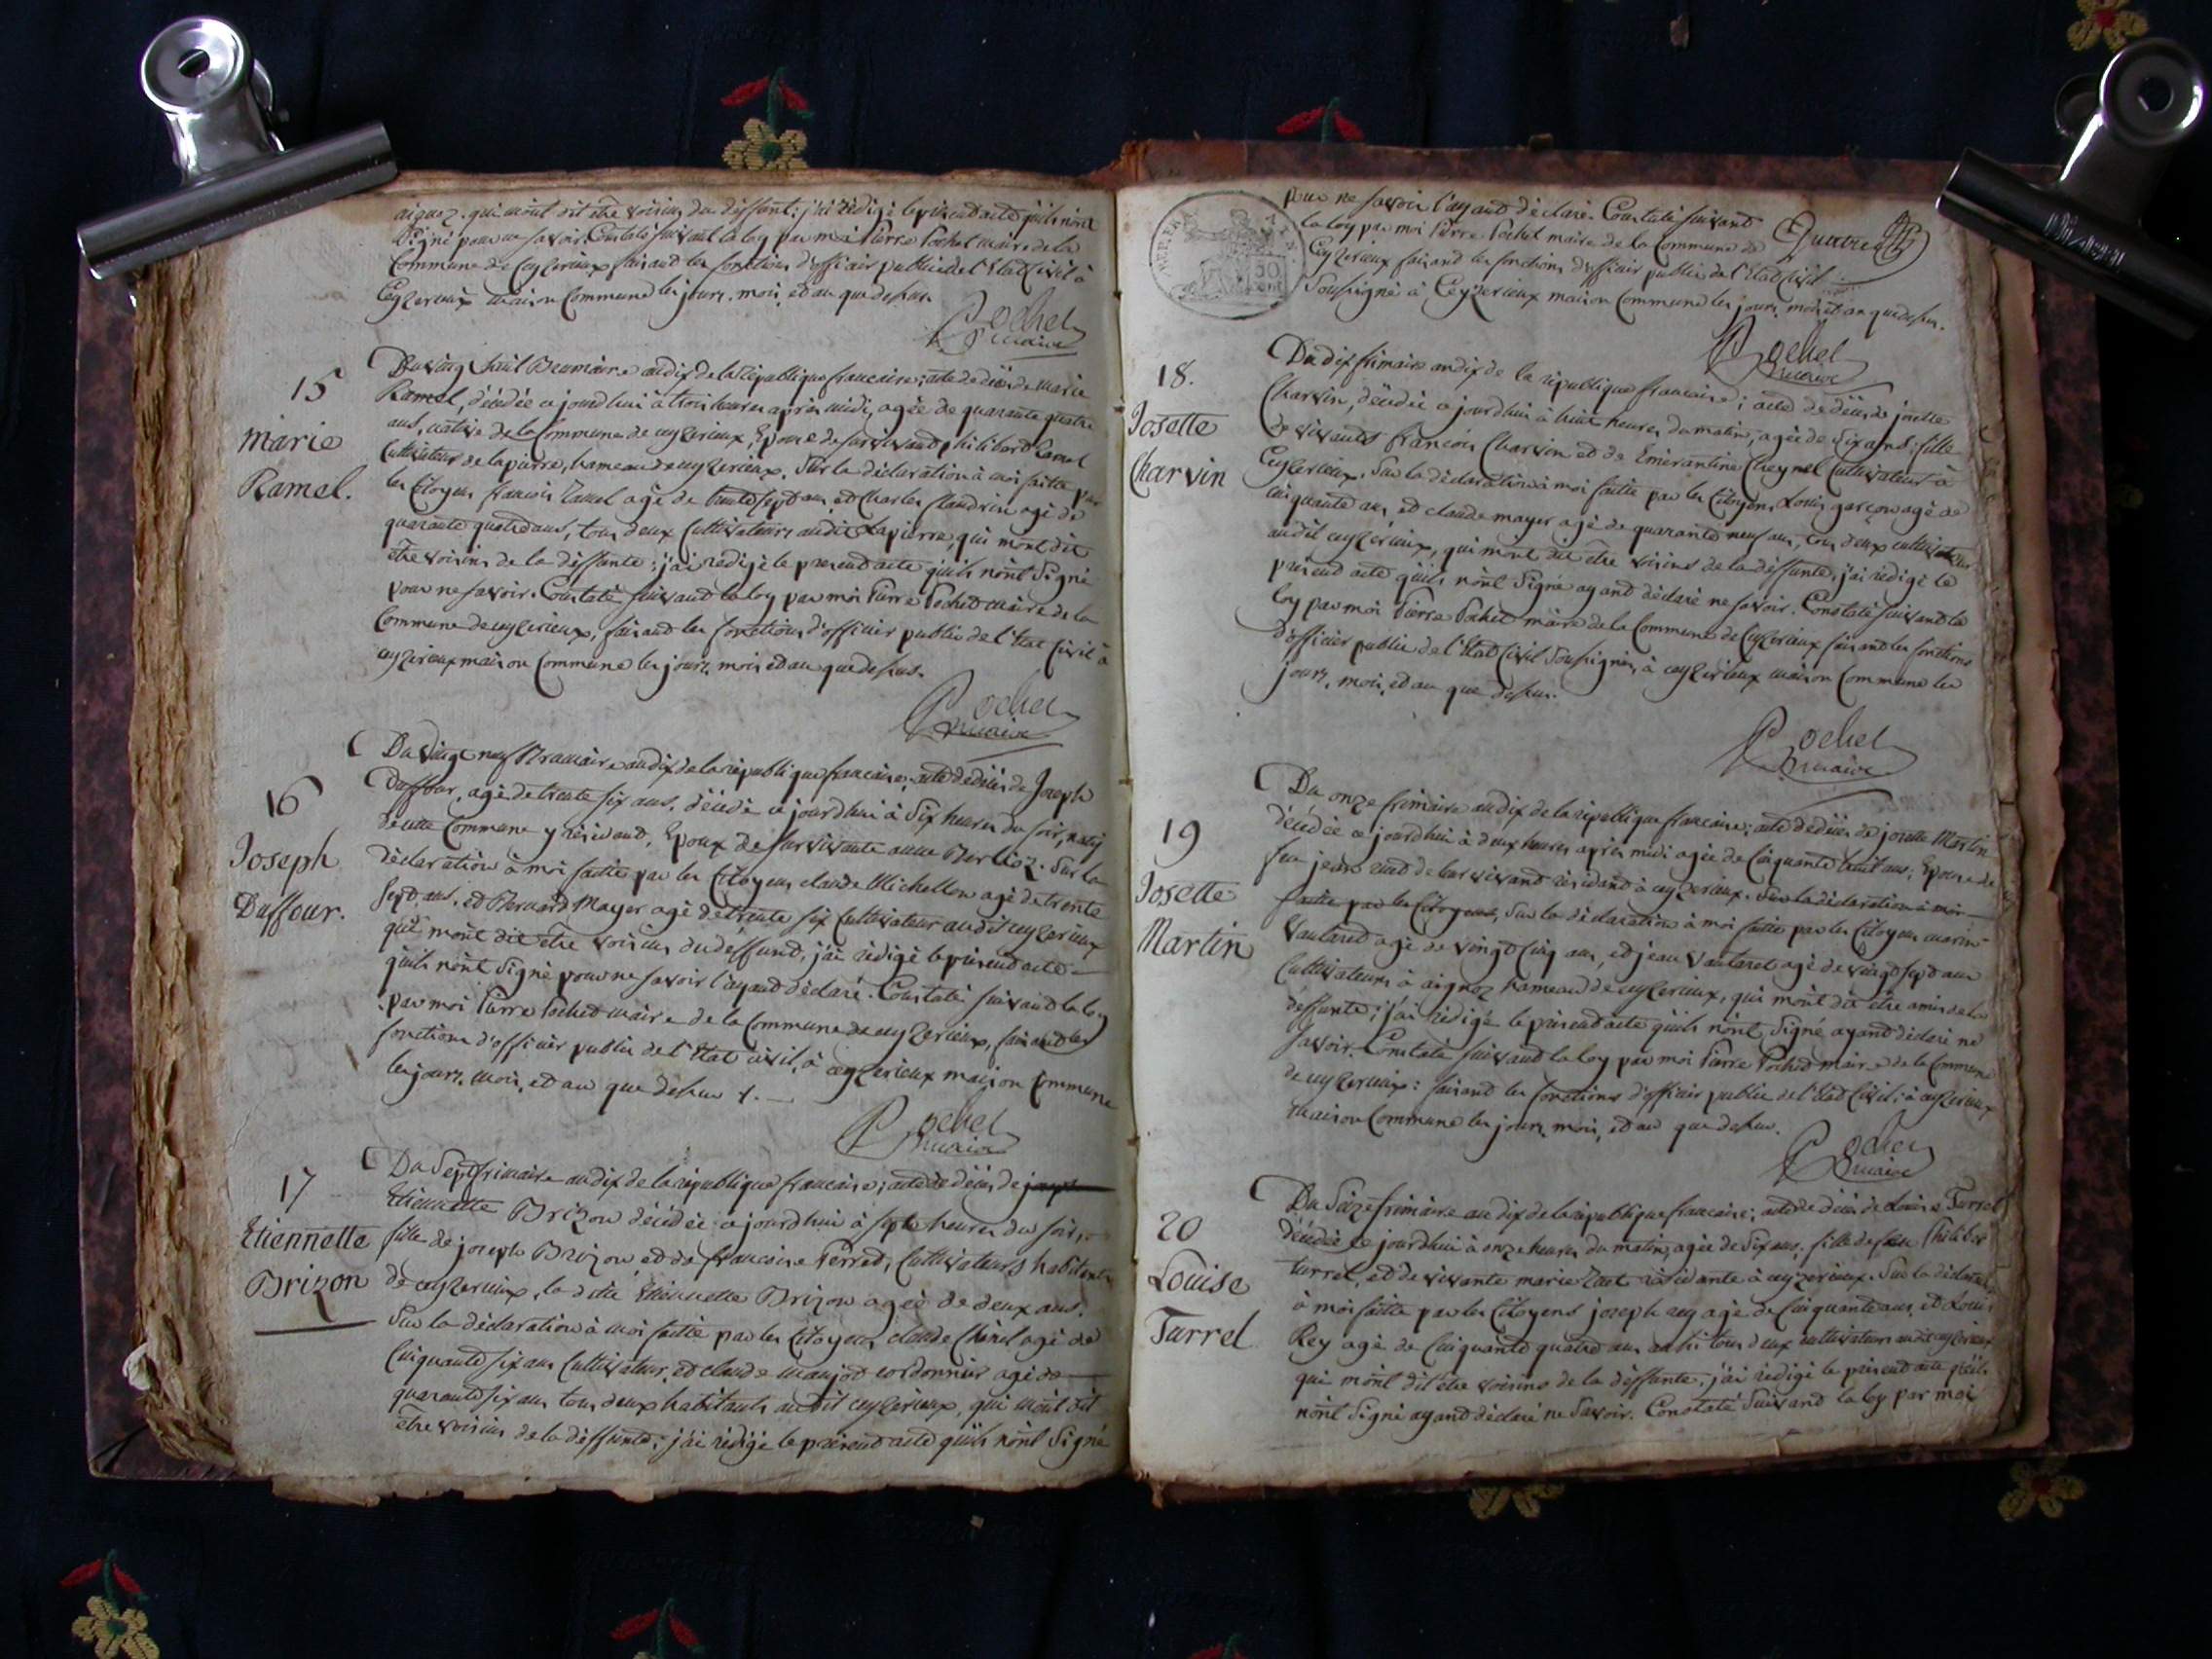 aignoz. qui mont dit etre voisins du deffunt; j'ai redigé le présend acte quils nont
Signé pour ne savoir. Constaté suivant la loy par moi Pierre Pochet maire de la
Commune de Ceyzerieux faisand les fonctions d'officier public de l'Etat Civil à
Ceyzerieux maison Commune les jours, mois, et an que dessus.
Pochet
maire
15
marie
Ramel.
Du vingt huit Brumaire an dix de la république francaise; acte de décès de marie
Ramel, décédée ce jourdhui à trois heures après midi, agée de quarante quatre
ans, native de la Commune de ceyzerieux, Epouse de survivand philibard Ramel
Cultivateur de lapierre, hameau de ceyzerieux. Sur la déclaration à moi faitte par
les Citoyens francois Ramel agé de trente sept ans, et Charles Claudrin agé de
quarante quatre ans, tous deux Cultivateurs audit Lapierre, qui mont dit
etre voisins de la deffunte; j'ai rédigé le présend acte quils nont Signé
pour ne savoir. Constaté suivand la loy par moi Pierre Pochet maire de la
Commune de ceyzerieux, faisand les fonctions d'officier public de l'Etat Civil à
ceyzerieux maison Commune les jours, mois et an que dessus.
Pochet
maire
16
Joseph
Duffour.
Du vingt neuf Brumaire an dix de la république francaise; acte de décès de Joseph
Duffour, agé de trente six ans, décédé ce jourdhui à Six heures du soir, natif
de cette Commune y résidand, Epoux de survivante anne Berlioz. Sur la
déclaration à moi faitte par les Citoyens claude Michellon agé de trente
Sept ans, et Bernard Mayer agé de trente six Cultivateur audit ceyzerieux
qui mont dit etre voisins du deffund, j'ai rédigé le présend acte
quils nont Signé pour ne savoir l'ayand déclaré. Constaté suivand la loy
par moi Pierre Pochet maire de la Commune de ceyzerieux, faisand les
fonctions d'officier public de l'Etat civil, à ceyzerieux maison Commune
les jours, mois, et an que dessus.
Pochet
maire
17
Etiennette
Brizon
Du Sept frimaire an dix de la république francaise; acte de décès de joseph
Etiennette Brizon décédée ce jourdhui à sept heures du soir,
fille de joseph Brizon, et de francoise Perred, Cultivateurs habitants
de ceyzerieux, la dite Etiennette Brizon agée de deux ans.
Sur la déclaration à moi faitte par les Citoyens claude Chénel agé de
Cinquante six ans Cultivateur, et claude maujot cordonnier agé de
quarante six ans tous deux habitants audit ceyzerieux, qui mont dit
etre voisins de la deffunte; j'ai rédigé le présend acte quils nont Signé
pour ne savoir l'ayand déclaré. Constaté suivant
la loy par moi Pierre Pochet maire de la Commune de
Ceyzerieux faisand les fonctions d'officier public de l'Etat Civil
Soussigné à Ceyzerieux maison Commune les jours, mois et an que dessus.
Pochet
maire
18.
Josette
Charvin
Du dix frimaire an dix de la république francaise; acte de décès de josette
Charvin, décédée ce jourdhui à huit heures du matin, agée de six ans: fille
de vivants francois Charvin et de Emerantine Cheynel Cultivateurs à
Ceyzerieux. Sur la déclaration à moi faitte par les Citoyens Louis garcon agé de
cinquante ans, et claude mayer agé de quarante neuf ans, tous deux cultivateurs
audit ceyzerieux, qui mont dit etre voisins de la deffunte, j'ai rédigé le
présend acte quils nont Signé ayand déclaré ne savoir. Constaté suivand la
loy par moi Pierre Pochet maire de la Commune de Ceyzerieux faisand les fonctions
d'officier public de l'Etat Civil Soussigné, à ceyzerieux maison Commune les
jours, mois, et an que dessus.
Pochet
maire
19
Josette
Martin
Du onze frimaire an dix de la république francaise; acte de décès de josette Martin
décédée ce jourdhui à deux heures après midi agée de Cinquante huit ans; Epouse de
feu jean de survivand résidand à ceyzerieux. Sur la déclaration à moi
faitte par les Citoyens, Sur la déclaration à moi faitte par les Citoyens marin
Vautaret agé de vingt cinq ans, et jean Vautaret agé de vingt sept ans
Cultivateurs à aignoz hameau de ceyzerieux, qui mont dit etre amis de la
deffunte; j'ai rédigé le présend acte quils nont Signé ayand déclaré ne
Savoir. Constaté suivand la loy par moi Pierre Pochet maire de la Commune
de ceyzerieux: faisand les fonctions d'officier public de l'Etat Civil; à ceyzerieux
maison Commune les jours, mois, et an que dessus.
Pochet
maire
20
Louise
Turrel
Du Seize frimaire an dix de la république francaise; acte de décès de Louise Turrel
décédée ce jourdhui à onze heures du matin, agée de Six ans, fille de feu Philibert
turrel, et de vivante marie résidante à ceyzerieux. Sur la déclaration
à moi faitte par les Citoyens joseph rey agé de Cinquante ans, et Louis
Rey agé de Cinquante quatre ans tous deux cultivateurs audit ceyzerieux
qui mont dit etre voisins de la deffunte; j'ai rédigé le présend acte quils
nont Signé ayand déclaré ne Savoir. Constaté Suivand la loy par moi